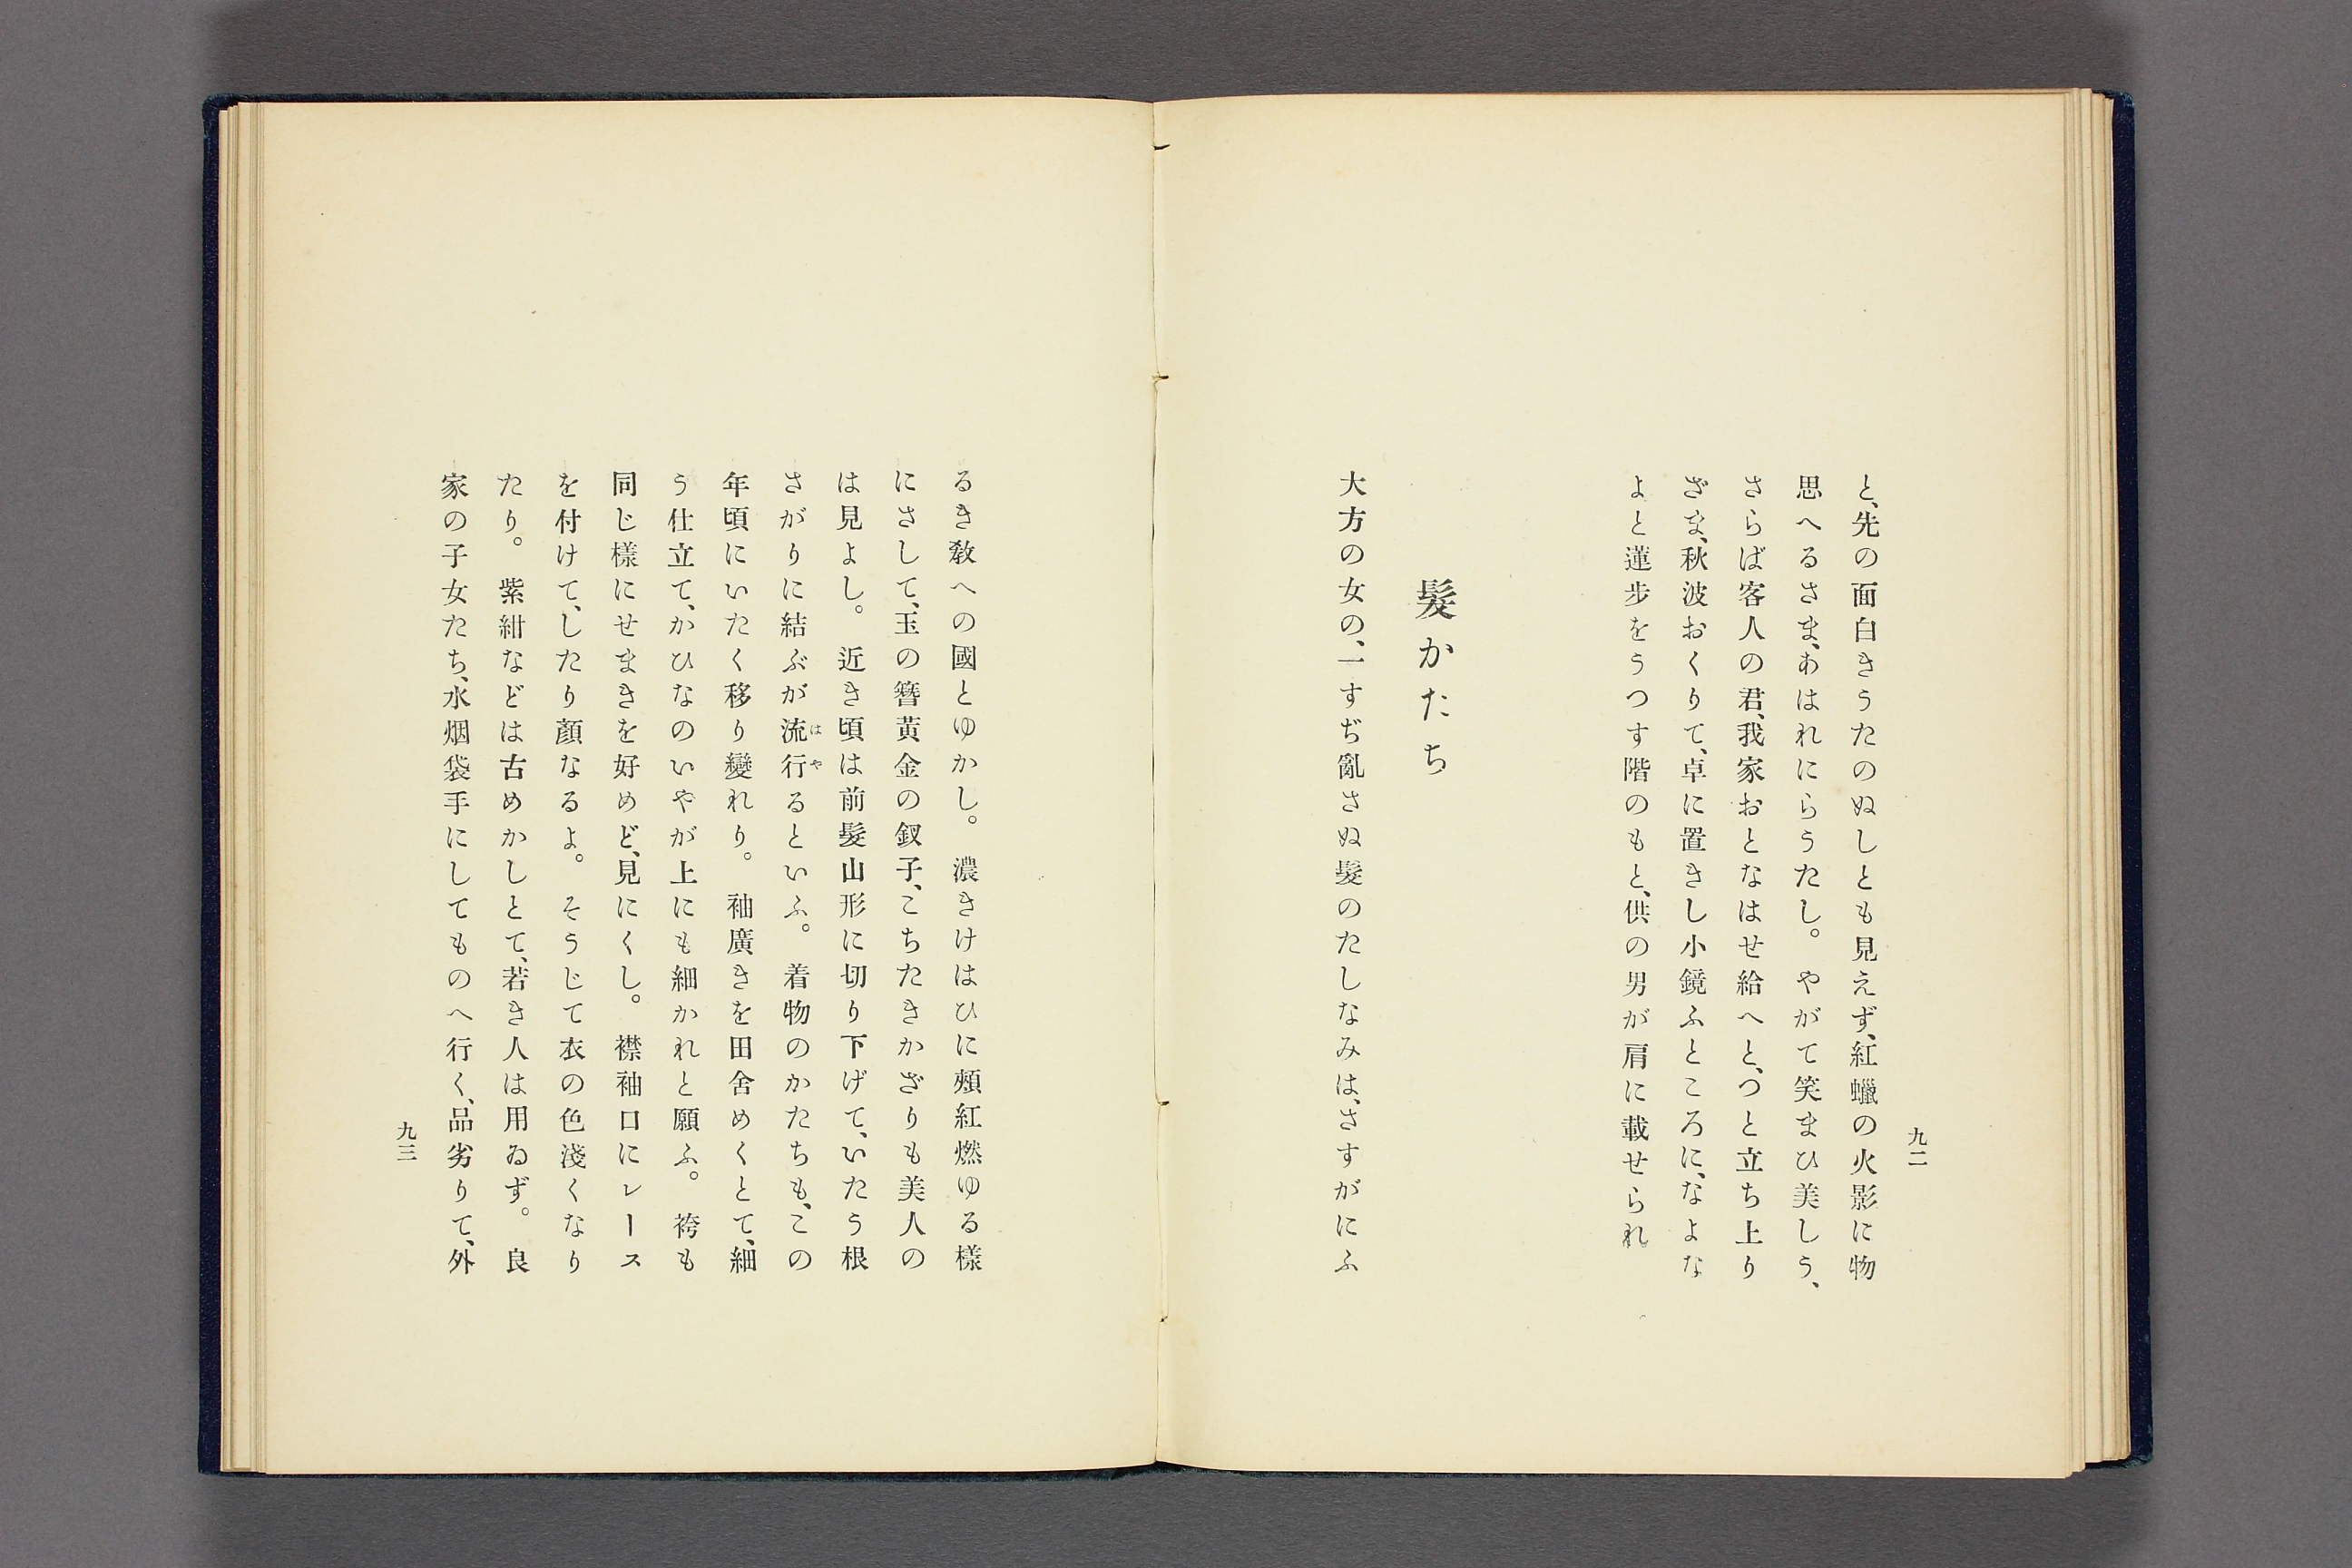 九二
と、先の面白きうたのぬしとも見えず、紅蠟の火影に物
思へるさま、あはれにらうたし。やがて笑まひ美しう、
さらば客人の君、我家おとなはせ給へと、つと立ち上り
ざま、秋波おくりて、卓に置きし小鏡ふところに、なよな
よと蓮步をうつす階のもと、供の男が肩に載せられ
髮かたち
大方の女の、一すぢ亂さぬ髮のたしなみは、さすがにふ
るき敎への國とゆかし。濃きけはひに頰紅燃ゆる樣
にさして、玉の簪黃金の釵子、こちたきかざりも美人の
は見よし。近き頃は前髮山形に切り下げて、いたう根
さがりに結ぶが流行るといふ。着物のかたちも、この
はや
年頃にいたく移り變れり。袖廣きを田舍めくとて、細
う仕立て、かひなのいやが上にも細かれと願ふ。袴も
同じ樣にせまきを好めど、見にくし。襟袖口にレース
を付けて、したり顏なるよ。そうじて衣の色淺くなり
たり。紫紺などは古めかしとて、若き人は用ゐず。良
家の子女たち、水烟袋手にしてものへ行く、品劣りて、外
九三